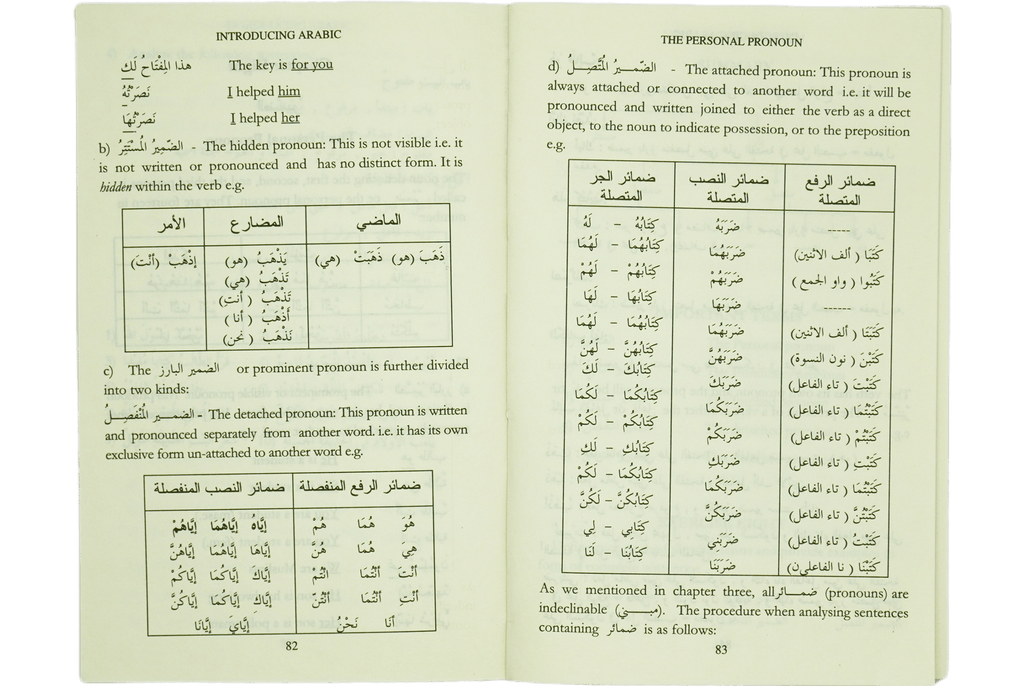 INTRODUCING ARABIC
هذا المِفْتَاحُ لَكَ The key is for you
نَصَرْتُهُ I helped him
نَصَرْتُهَا I helped her
b) الضَّمِيرُ المُسْتَتِرُ - The hidden pronoun: This is not visible i.e. it
is not written or pronounced and has no distinct form. It is
hidden within the verb e.g.
الماضي المضارع الأمر
ذَهَبَ (هو) ذَهَبَتْ (هي) يَذْهَبُ (هو) إذْهَبْ (أَنْتَ)
تَذْهَبُ (هي)
تَذْهَبُ (أنتِ)
أَذْهَبُ (أنا)
نَذْهَبُ (نحن)
c) The الضمير البارز or prominent pronoun is further divided
into two kinds:
الضمـــير المُنْفَصِـــلُ - The detached pronoun: This pronoun is written
and pronounced separately from another word. i.e. it has its own
exclusive form un-attached to another word e.g.
ضمائر الرفع المنفصلة ضمائر النصب المنفصلة
هُوَ هُمَا هُمْ إيَّاهُ إيَّاهُمَا إيَّاهُمْ
هِيَ هُمَا هُنَّ إيَّاهَا إيَّاهُمَا إيَّاهُنَّ
أنْتَ أنْتُمَا أنْتُمْ إيَّاكَ إيَّاكُمَا إيَّاكُمْ
أنْتِ أنْتُمَا أنْتُنَّ إيَّاكِ إيَّاكُمَا إيَّاكُنَّ
أنَا نَحْنُ إيَّايَ إيَّانَا
82
THE PERSONAL PRONOUN
d) الضَّمـــيرُ المُتَّصِـــلُ - The attached pronoun: This pronoun is
always attached or connected to another word i.e. it will be
pronounced and written joined to either the verb as a direct
object, to the noun to indicate possession, or to the preposition
e.g.
ضمائر الرفع ضمائر النصب ضمائر الجر
المتصلة المتصلة المتصلة
----- ضَرَبَهُ كِتَابُهُ – لَهُ
كَتَبَا (ألف الاثنين) ضَرَبَهُمَا كِتَابُهُمَا – لَهُمَا
كَتَبُوا (واو الجمع) ضَرَبَهُمْ كِتَابُهُمْ – لَهُمْ
----- ضَرَبَهَا كِتَابُهَا – لَهَا
كَتَبَتَا (ألف الاثنين) ضَرَبَهُمَا كِتَابُهُمَا – لَهُمَا
كَتَبْنَ (نون النسوة) ضَرَبَهُنَّ كِتَابُهُنَّ – لَهُنَّ
كَتَبْتَ (تاء الفاعل) ضَرَبَكَ كِتَابُكَ – لَكَ
كَتَبْتُمَا (تاء الفاعل) ضَرَبَكُمَا كِتَابُكُمَا – لَكُمَا
كَتَبْتُمْ (تاء الفاعل) ضَرَبَكُمْ كِتَابُكُمْ – لَكُمْ
كَتَبْتِ (تاء الفاعل) ضَرَبَكِ كِتَابُكِ – لَكِ
كَتَبْتُمَا (تاء الفاعل) ضَرَبَكُمَا كِتَابُكُمَا – لَكُمْ
كَتَبْتُنَّ (تاء الفاعل) ضَرَبَكُنَّ كِتَابُكُنَّ – لَكُنَّ
كَتَبْتُ (تاء الفاعل) ضَرَبَنِي كِتَابي – لِي
كَتَبْنَا (نا الفاعلين) ضَرَبَنَا كِتَابُنَا – لَنَا
As we mentioned in chapter three, all ضمـــائر (pronouns) are
indeclinable (مبـــني). The procedure when analysing sentences
containing ضمائر is as follows:
83